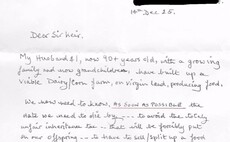 10th Dec 25.
Dear Sir Keir,
My Husband & I, now 90+ years old, with a growing
family and now grandchildren, have built up a
Viable Dairy/corn farm, on virgin land, producing food.
We now need to know, AS SOON AS POSSIBLE the
date we need to die by -- to avoid the totally
unfair inheritance tax -- that will be forcibly put
on our offspring -- to have to sell/split up a food